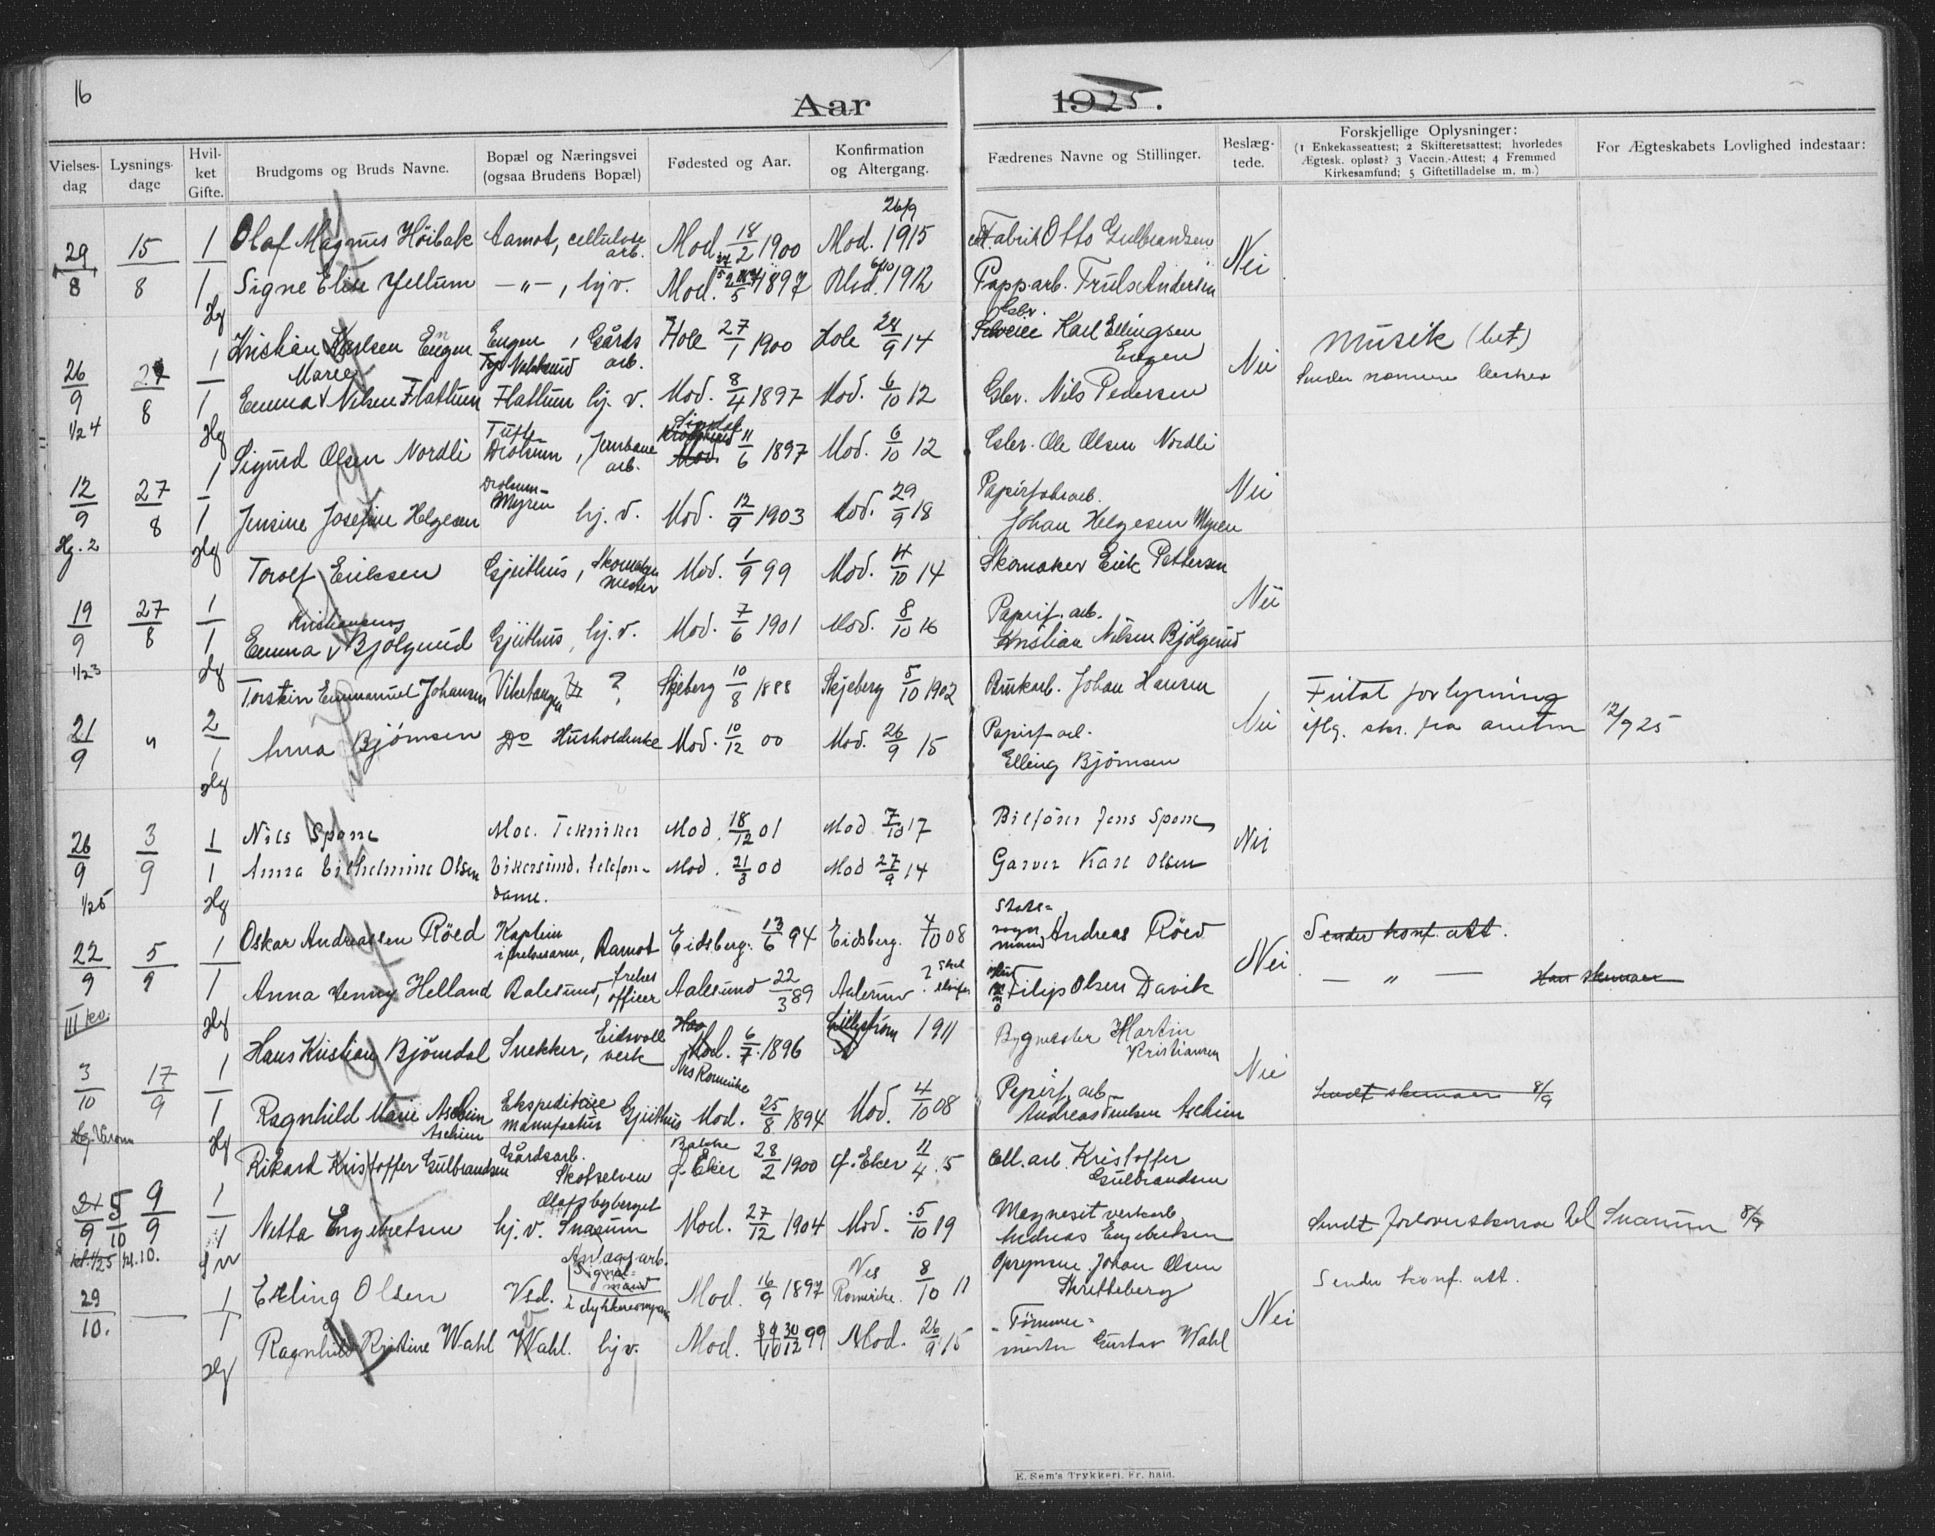 16
Aar 1925.
Vielses-dag
Lysnings-dage
Hvil-ket Gifte.
Brudgoms og Bruds Navne.
Bopæl og Næringsvei (ogsaa Brudens Bopæl)
Fødested og Aar.
Konfirmation og Altergang.
Fædrenes Navne og Stillinger.
Beslæg-tede.
Forskjellige Oplysninger:
(1 Enkekasseattest; 2 Skifteretsattest; hvorledes
Ægtesk. opløst? 3 Vaccin.-Attest; 4 Fremmed
Kirkesamfund; 5 Giftetilladelse m. m.)
For Ægteskabets Lovlighed indestaar:
29/8 15/8 1 Olaf Magnus Höibak Aamot, cellulose arb. Mod. 18/2 1900 Mod. 26/9 1915 Otto Gulbrandsen Nei
1 Signe Elise Jellum —"—, hj.v. Mod. 1897 Mod. 6/10 1912 Papparb. Truls Andersen
Hg
26/9 27/8 1 Kristian Karlsen Engen Engen, Gårds arb. Hole 27/1 1900 Hole 28/9 14 Karl Ellingsen Engen Nei Musik (bet)
1/24 1 Emma Marie Nilsen Flattum Flattum hj. v. Mod. 8/4 1897 Mod. 6/10 12 Gbr. Nils Pedersen
Hg
12/9 27/8 1 Sigurd Olsen Nordli Tufte Drolsum, Jernbane arb. 11/6 1897 Mod. 6/10 12 Gbr. Ole Olsen Nordli Nei
Hg. 2 1 Jensine Josefine Helgesen Drolsum-Myren hj. v. Mod. 12/9 1903 Mod. 29/9 18 Johan Helgesen Myren
Hg
19/9 27/8 1 Torolf Eriksen Gjeithus, Mod. 1/9 99 Mod. 4/10 14 Skomaker Erik Pettersen Nei
1/23 1 Emma Kristiansen Bjölgerud Gjeithus, hj. v. Mod. 7/6 1901 Mod. 8/10 16 Papirf. arb. Kristian Nilsen Bjölgerud
Hg
21/9 " 2 Torstein Emmanuel Johansen ? Skjeberg 10/8 1888 Skjeberg 5/10 1902 Brukarb. Johan Hansen Nei Fritat for lysning
1 Anna Bjørnsen Do Mod. 10/12 00 Mod. 26/9 15 Papirf. arb. Elling Bjørnsen iflg. skr. fra 12/9 25
Hg
26/9 3/9 1 Nils Spone Mod. Tekniker Mod. 18/12 01 Mod 7/10 17 Jens Spone Nei
1/25 1 Anna Vilhelmine Olsen Vikersund. telefon-dame. Mod. 21/3 00 Mod 27/9 14 Garver Karl Olsen
Hg
22/9 5/9 1 Oskar Andreassen Röed Kaptein i frelsesarm, Aamot Eidsberg. 13/6 94 Eidsberg. 4/10 08 Andreas Röed Nei Sender konf. att.
1 Anna Jenny Helland Aalesund, frelses officer Aalesund 22/3 89 Aalesund ? Filip Olsen Davik — " —
Hg
3/10 17/9 1 Hans Kristian Bjömdal Snekker, Eidsvoll verk Nes Romerike 6/7 1896 Lillestrøm 1911 Bygmester Martin Kristiansen Nei
1 Ragnhild Marie Aschim Ekspeditrise Manufaktur Gjeithus Mod. 25/8 1894 Mod. 4/10 08 Papirf. arb. Aschim Sendt skemaer 8/9
Hg
5/10 9/9 1 Rikard Kristoffer Gulbrandsen Gårdsarb. Skotselven Ø. Eker 28/2 1900 Ø. Eker 11/4 15 Cell. arb. Kristoffer Gulbrandsen
kl. 10. 1 Netta Engebretsen hj. v. Snarum Mod. 27/12 1904 Mod. 5/10 19 Magnesitverkarb Andreas Engebretsen Sendt forloverskema til Snarum 8/9
Sn
29/10. — 1 Erling Olsen Anlagsarb. Mod. 16/9 1897 Nes Romerike. 8/10 11 Johan Olsen Nei Sender konf. att.
1 Ragnhild Kristine Wahl Wahl. hj.v. Mod. 30/12 99 Mod. 26/9 15 Tömmer-mester Gustav Wahl
Hg
E. Sem's Trykkeri, Fr.hald.